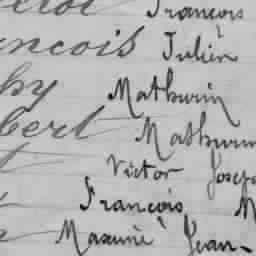 François
ncois Julien
hy Mathurin
bert Mathurin
Victor Josep
François M
Maxime Jean-